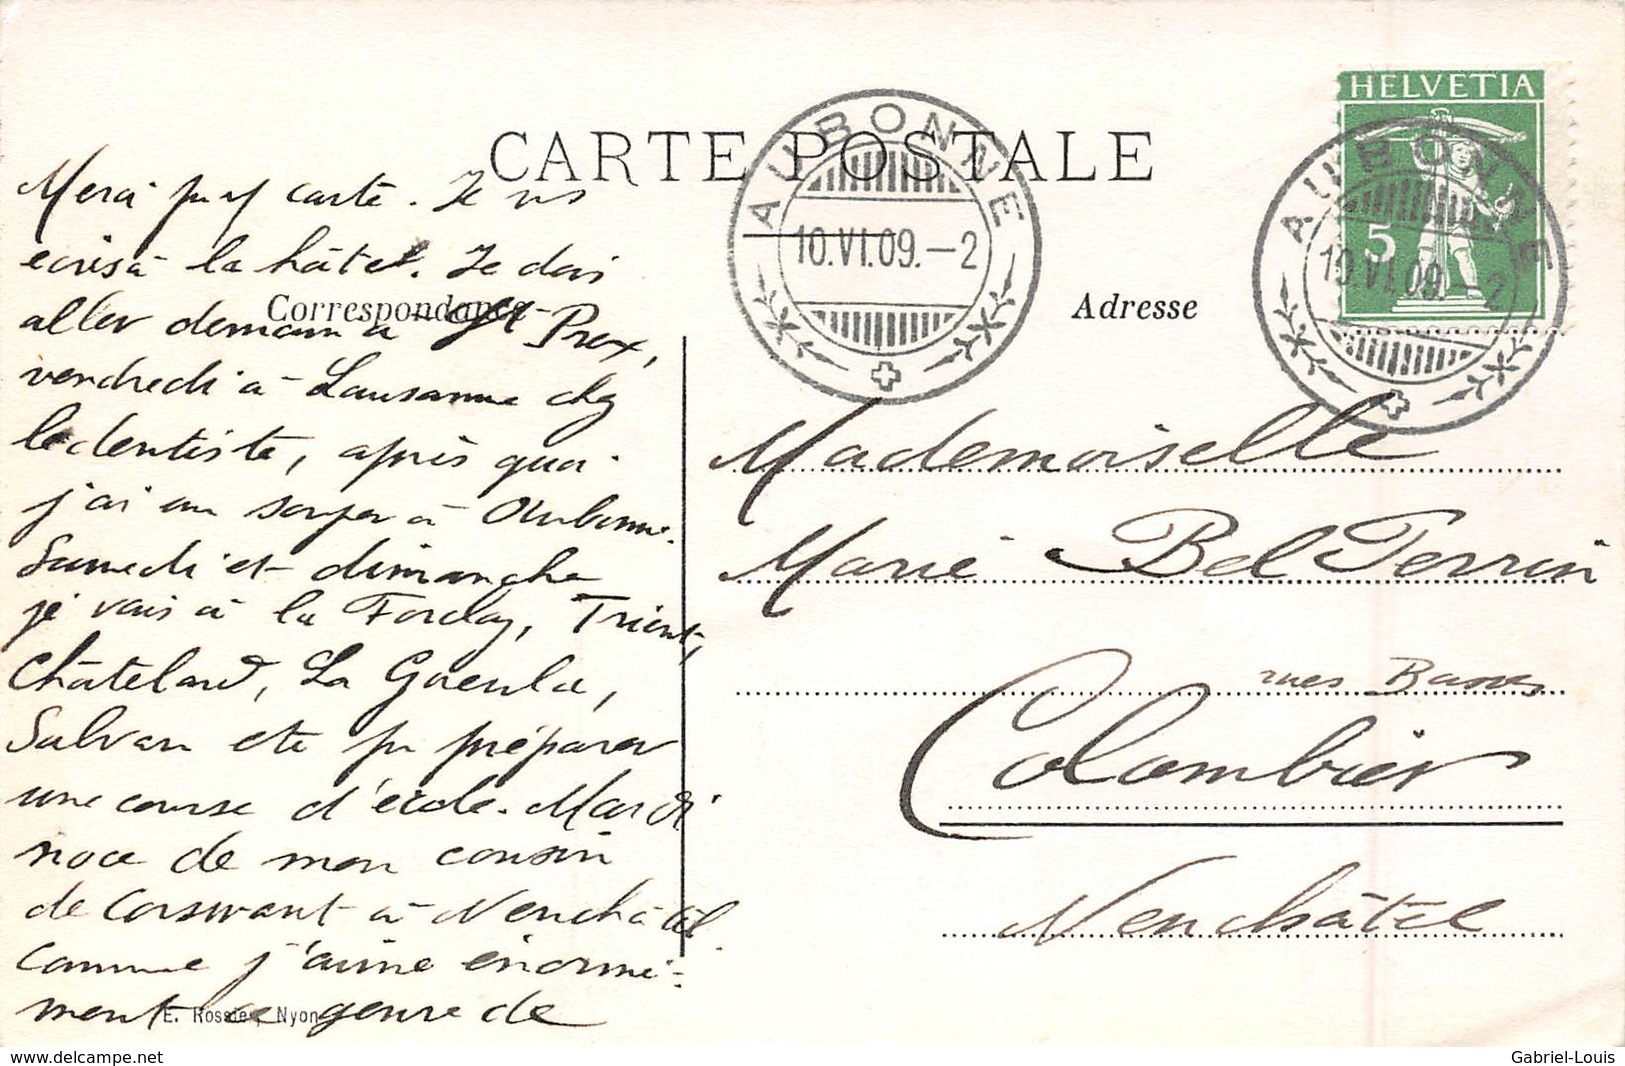 CARTE POSTALE
AUBONNE
10.VI.09.-2
HELVETIA
5
AUBONNE
10.VI.09.-2
Correspondance
Adresse
Merci pr vl carte. Je vs
écris à la hâte. Je dois
aller demain à St Prex,
vendredi à Lausanne chz
le dentiste, après quoi
j'ai un souper à Aubonne.
Samedi et dimanche
je vais à la Forclaz, Trient,
Châtelard, La Gueula,
Salvan etc pr préparer
une course d'école. Mardi
noce de mon cousin
de Corswant à Neuchâtel.
Comme j'aime énormé-
ment ce genre de
Mademoiselle
Marie Bel Perrin
rues Basses
Colombier
Neuchâtel
E. Rossier, Nyon
delcampe.net
Gabriel-Louis